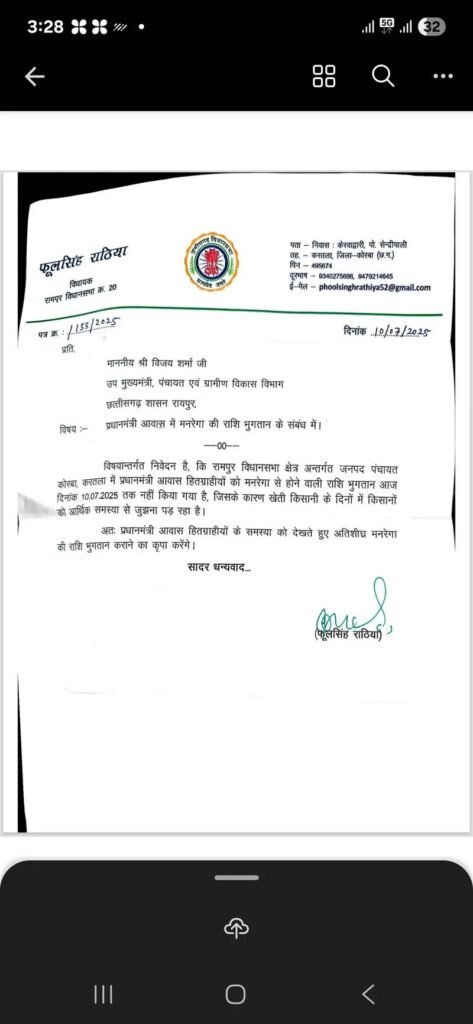 3:28
5G
32
फूलसिंह राठिया
विधायक
रामपुर विधानसभा क्र. 20
छत्तीसगढ़ विधानसभा
पता – निवास : केरवाद्वारी, पो. सेन्द्रीपाली
तह. – करतला, जिला–कोरबा (छ.ग.)
पिन – 495674
दूरभाष – 9340275686, 9479214645
ई-मेल – phoolsinghrathiya52@gmail.com
पत्र क्र. : 1133/2025
दिनांक 10/07/2025
प्रति,
माननीय श्री विजय शर्मा जी
उप मुख्यमंत्री, पंचायत एवं ग्रामीण विकास विभाग
छत्तीसगढ़ शासन रायपुर,
विषय :– प्रधानमंत्री आवास में मनरेगा की राशि भुगतान के संबंध में।
—00—
विषयान्तर्गत निवेदन है, कि रामपुर विधानसभा क्षेत्र अन्तर्गत जनपद पंचायत
कोरबा, करतला में प्रधानमंत्री आवास हितग्राहीयों को मनरेगा से होने वाली राशि भुगतान आज
दिनांक 10.07.2025 तक नहीं किया गया है, जिसके कारण खेती किसानी के दिनों में किसानों
को आर्थिक समस्या से जुझना पड़ रहा है।
अतः प्रधानमंत्री आवास हितग्राहीयों के समस्या को देखते हुए अतिशीघ्र मनरेगा
की राशि भुगतान कराने का कृपा करेंगे।
सादर धन्यवाद...
(फूलसिंह राठिया)